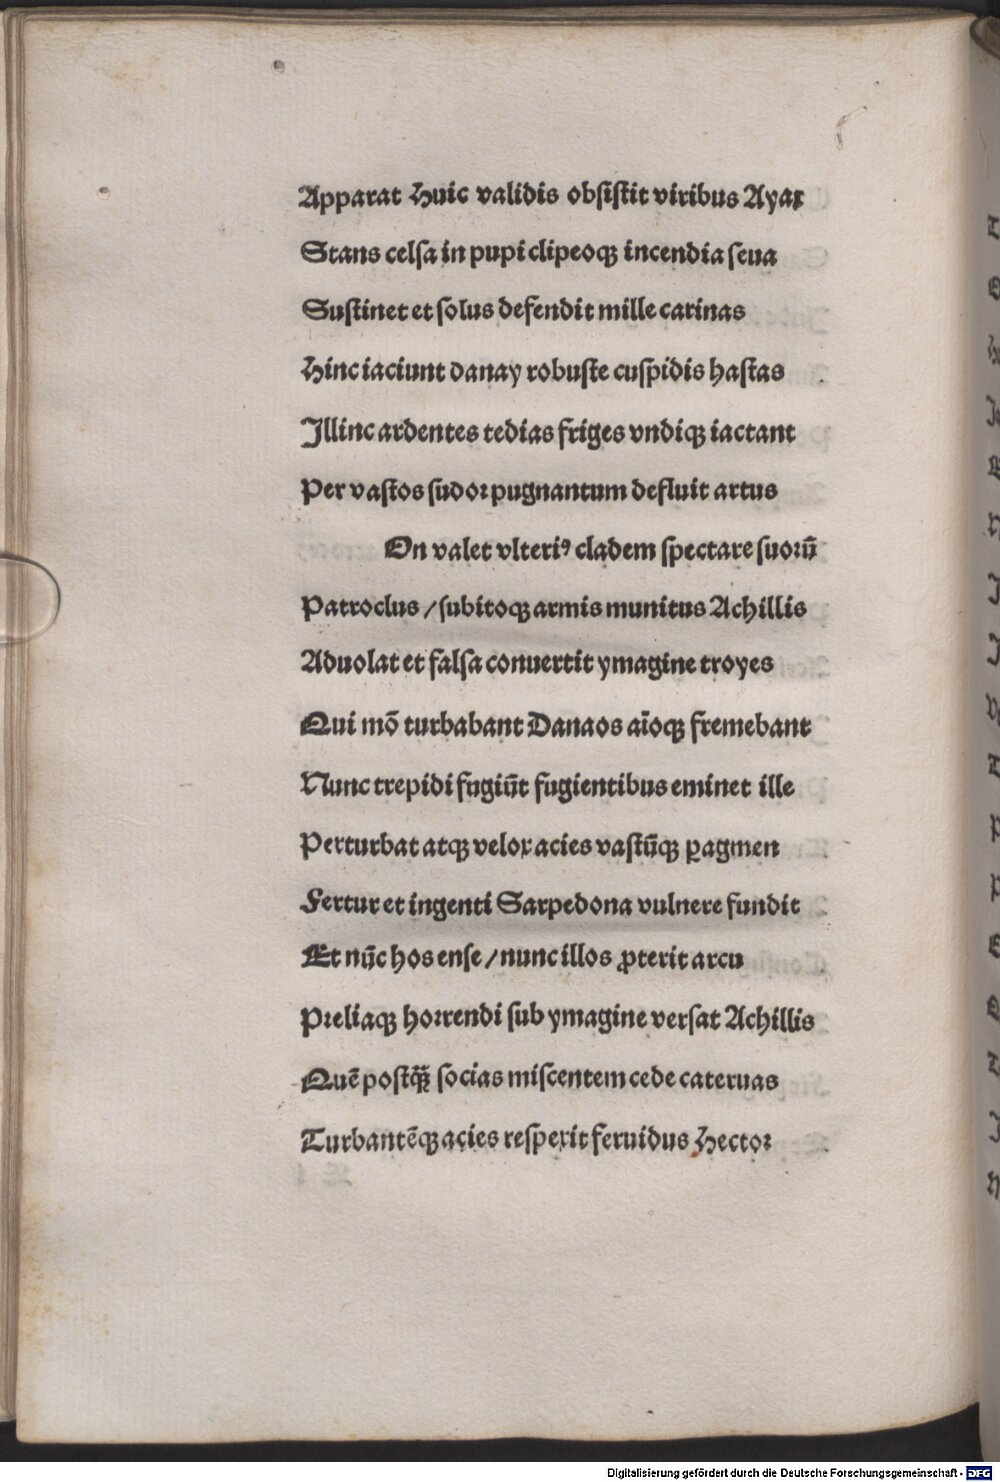 Apparat Huic validis obsiſtit viribus Ayax
Stans celſa in pupi clipeoqꝫ incendia ſeua
Suſtinet et ſolus defendit mille carinas
Hinc iaciunt danay robuſte cuſpidis haſtas
Illinc ardentes tedias friges vndiqꝫ iactant
Per vaſtos ſudoꝛ pugnantum defluit artus
On valet vlteriꝰ cladem ſpectare ſuoꝛū
Patroclus / ſubitoqꝫ armis munitus Achillis
Aduolat et falſa conuertit ymagine troyes
Qui mō turbabant Danaos aīoqꝫ fremebant
Nunc trepidi fugiūt fugientibus eminet ille
Perturbat atqꝫ velox acies vaſtūqꝫ ꝑagmen
Fertur et ingenti Sarpedona vulnere fundit
Et nūc hos enſe / nunc illos ꝓterit arcu
Pꝛeliaqꝫ hoꝛrendi ſub ymagine verſat Achillis
Quē poſtqꝫ̄ socias miſcentem cede cateruas
Turbantēqꝫ acies reſpexit feruidus Hectoꝛ
Digitalisierung gefördert durch die Deutsche Forschungsgemeinschaft - DFG